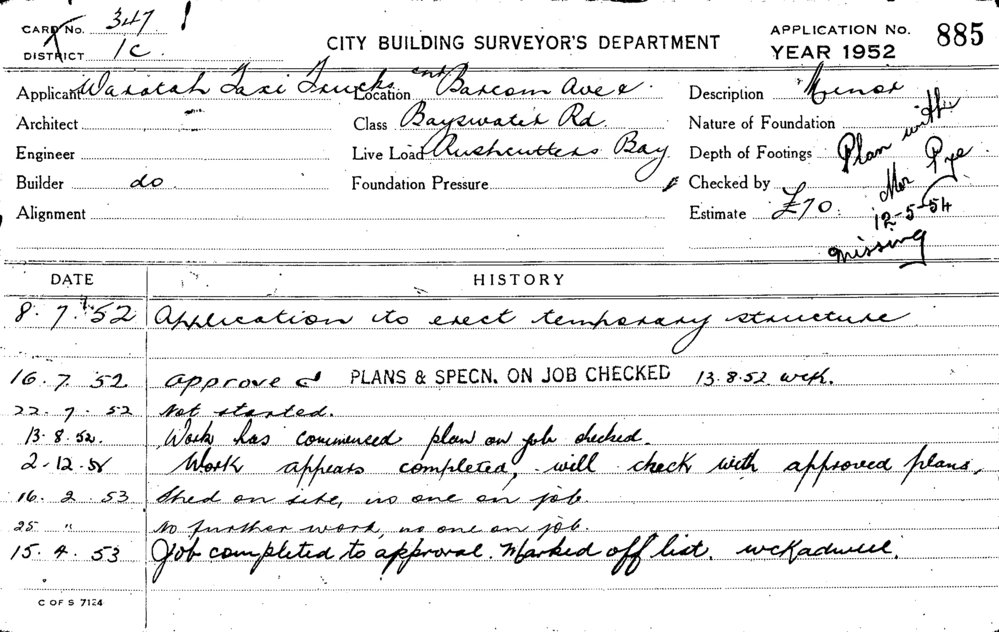 CARD No. 347
DISTRICT 1C
CITY BUILDING SURVEYOR'S DEPARTMENT
APPLICATION No. 885
YEAR 1952
Applicant Waratah Taxi Trucks Location cnr Barcom Ave & Description Minor
Architect Class Bayswater Rd. Nature of Foundation
Engineer Live Load Rushcutters Bay Depth of Footings
Builder do Foundation Pressure Checked by
Alignment Estimate £70
Plan with
Mr Pye
12-5-54
missing
DATE HISTORY
8.7.52 Application to erect temporary structure
16.7.52 approved PLANS & SPECN. ON JOB CHECKED 13.8.52 wck.
22.7.52 Not started.
13.8.52. Work has commenced plan on job checked.
2.12.52 Work appears completed, will check with approved plans,
16.2.53 Shed on site, no one on job
25 " No further work, no one on job.
15.4.53 Job completed to approval. Marked off list.
C OF S 7124